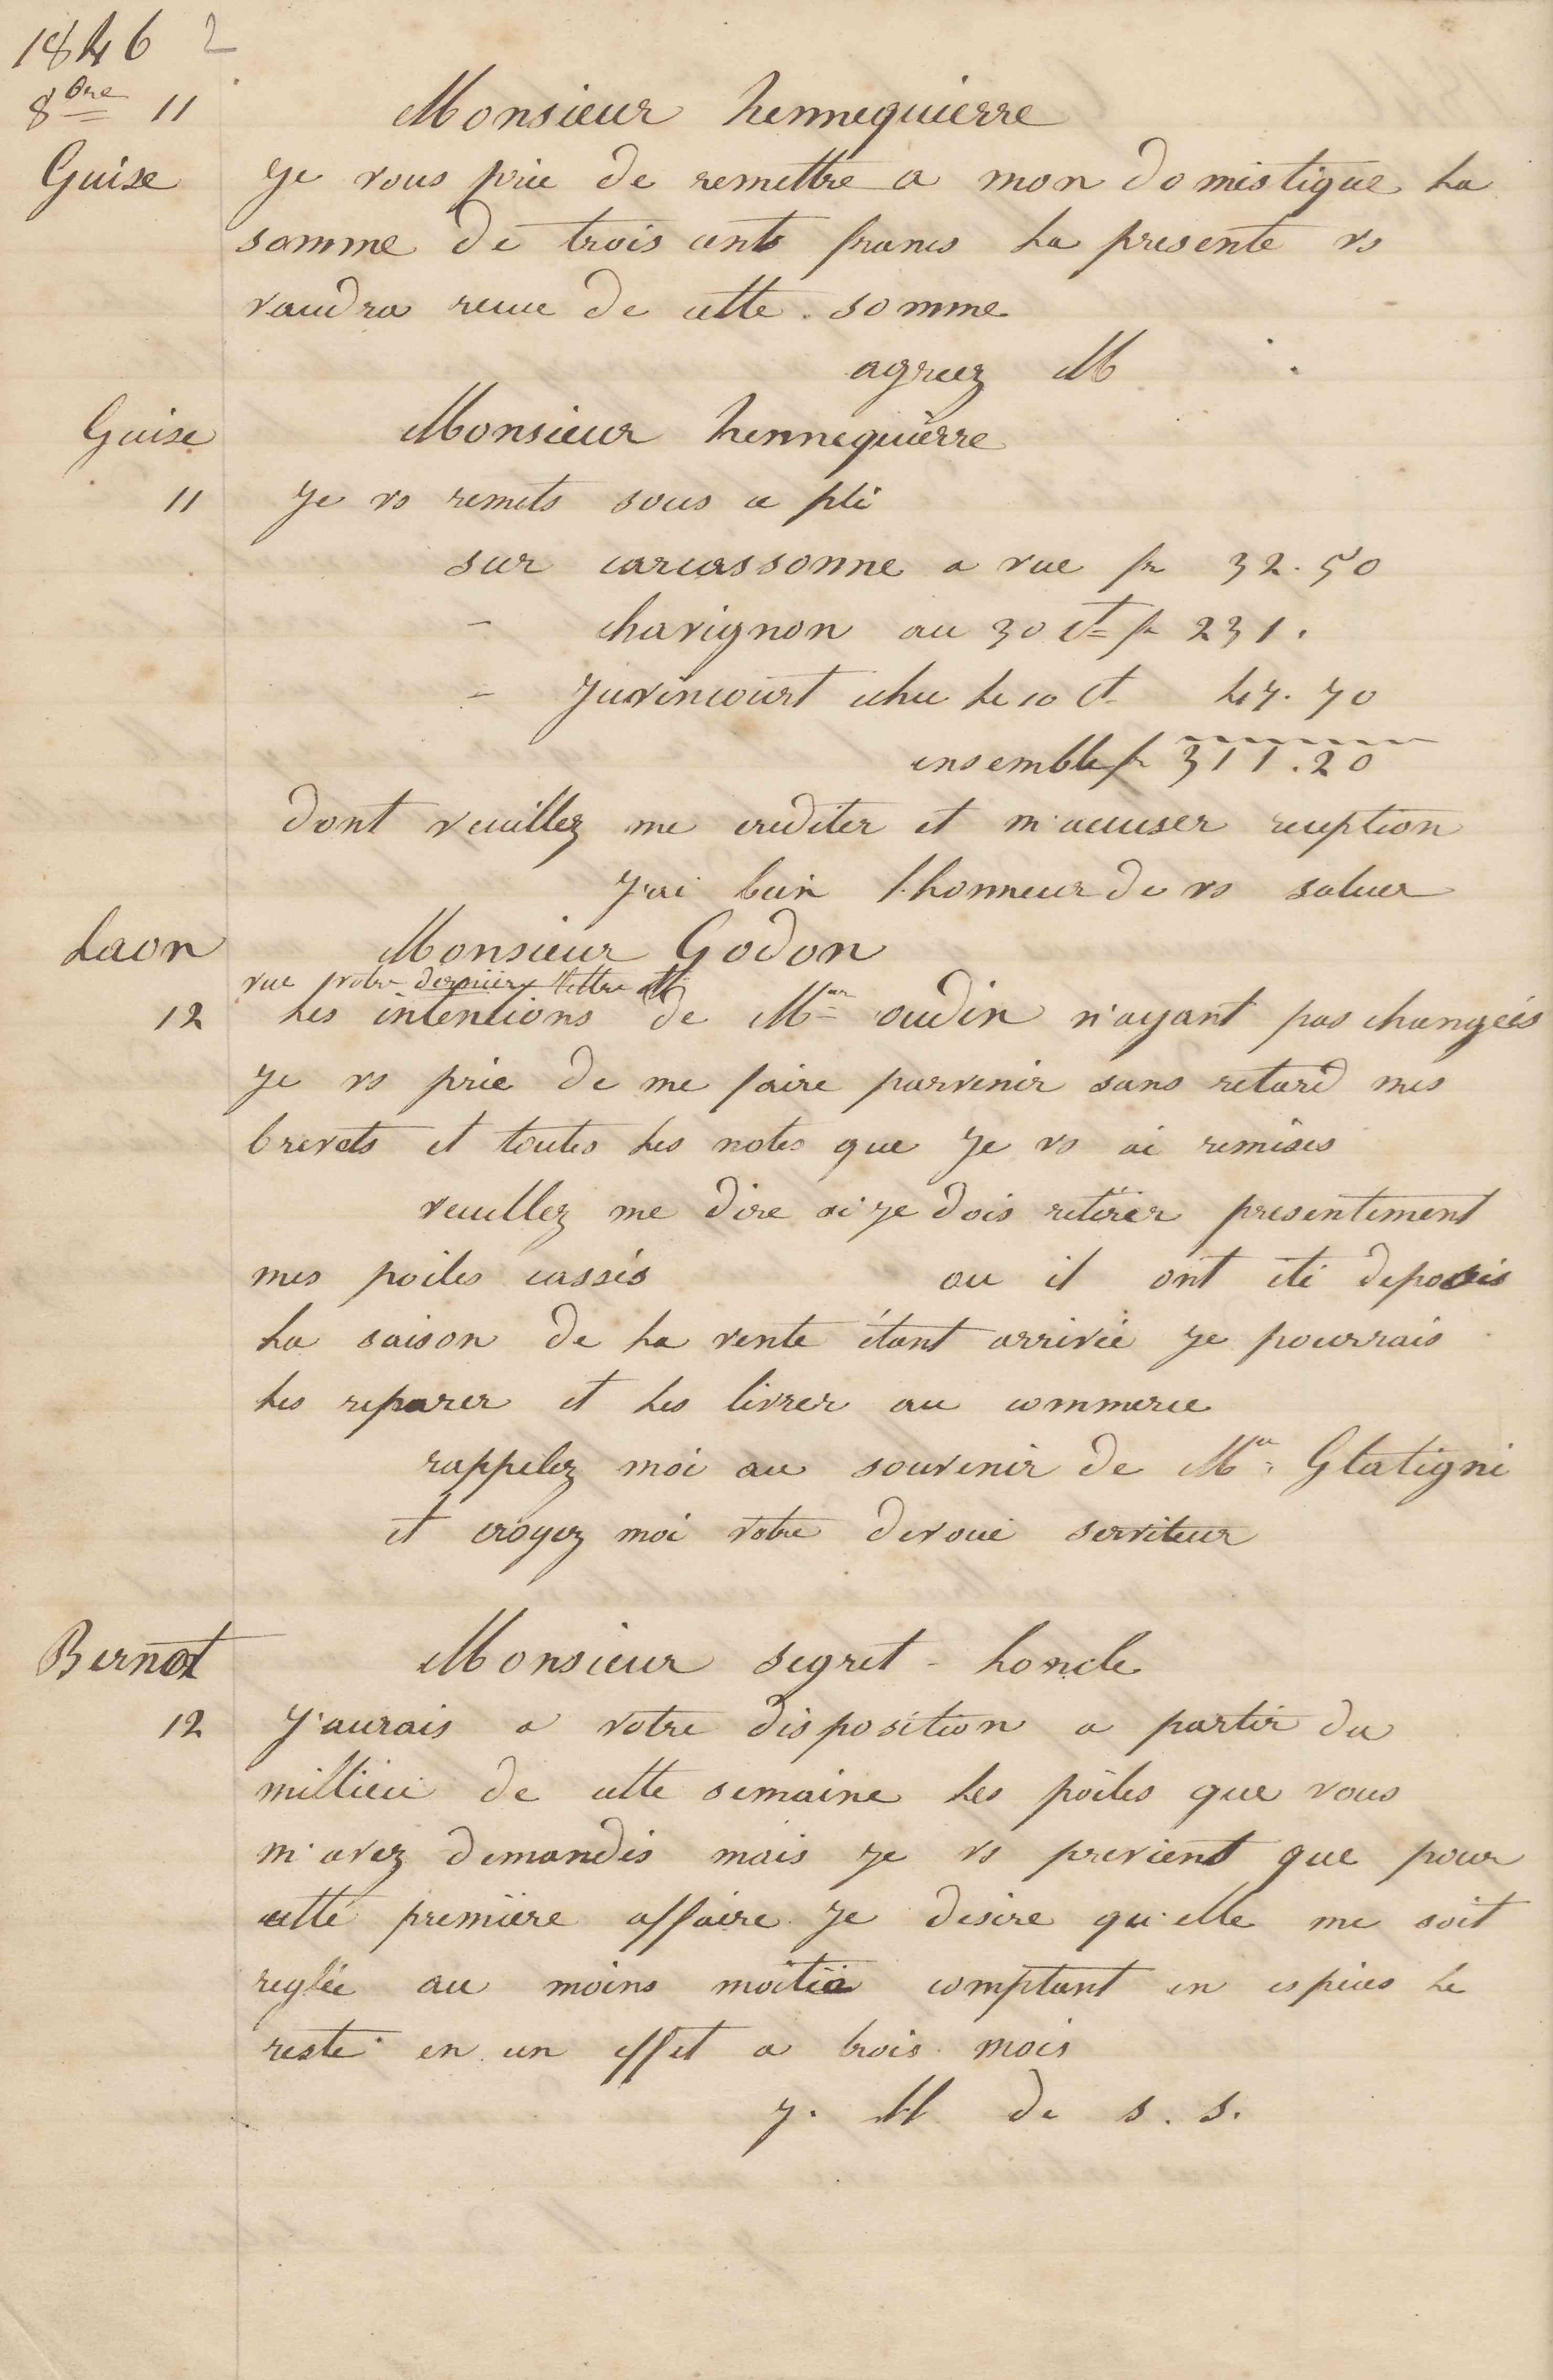 1846 2
8bre 11
Monsieur hennequierre
Guise
Je vous prie de remettre a mon domistique la
somme de trois cents francs la presente vs
vaudra recue de cette somme
agreez M
Guise
Monsieur hennequierre
11
Je vs remets sous ce pli
sur carcassonne a vue fr 32.50
- chavignon au 30 Ct fr 231.
- Juvincourt echu le 10 Ct 47.70
ensemble fr 311.20
dont veuillez me crediter et m'accuser reception
J'ai bein l'honneur de vs saluer
Laon
Monsieur Godon
vue votre derniere lettre et
12
les intentions de Mr oudin n'ayant pas changées
Je vs prie de me faire parvenir sans retard mes
brevets et toutes les notes que Je vs ai remises
veuillez me dire si je dois retirer presentement
mes poiles cassés ou il ont été deposés
la saison de la vente étant arrivée Je pourrais
les reparer et les livrer au commerce
rappelez moi au souvenir de Mr Glatigni
et croyez moi votre devoué serviteur
Bernot
Monsieur segret-
12
J'aurais a votre disposition a partir du
millieu de cette semaine les poiles que vous
m'avez demandés mais Je vs previent que pour
cette première affaire Je desire qu'elle me soit
reglée au moins moitié comptant en espèces le
reste en un effet a trois mois
J. H de s. s.